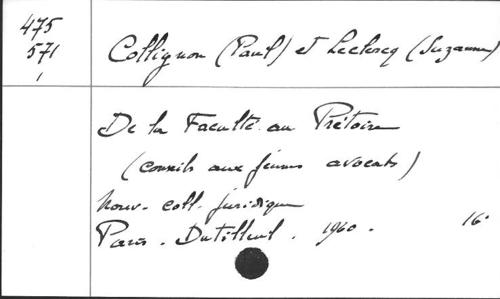 475
571
1
Collignon (Paul) et Leclercq (Suzanne)
De la Faculté au Prétoire
(conseils aux jeunes avocats)
Nouv. coll. juridique
Paris. Dutilleul. 1960. 16°